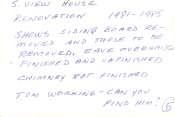 S. VIEW HOUSE
RENOVATION 1981-1985
SHOWS SIDING BOARD RE-
MOVED AND THOSE TO BE
REMOVED. EAVE OVERHANG
FINISHED AND UNFINISHED
CHIMNEY NOT FINISHED
TOM WORKING - CAN YOU
FIND HIM?